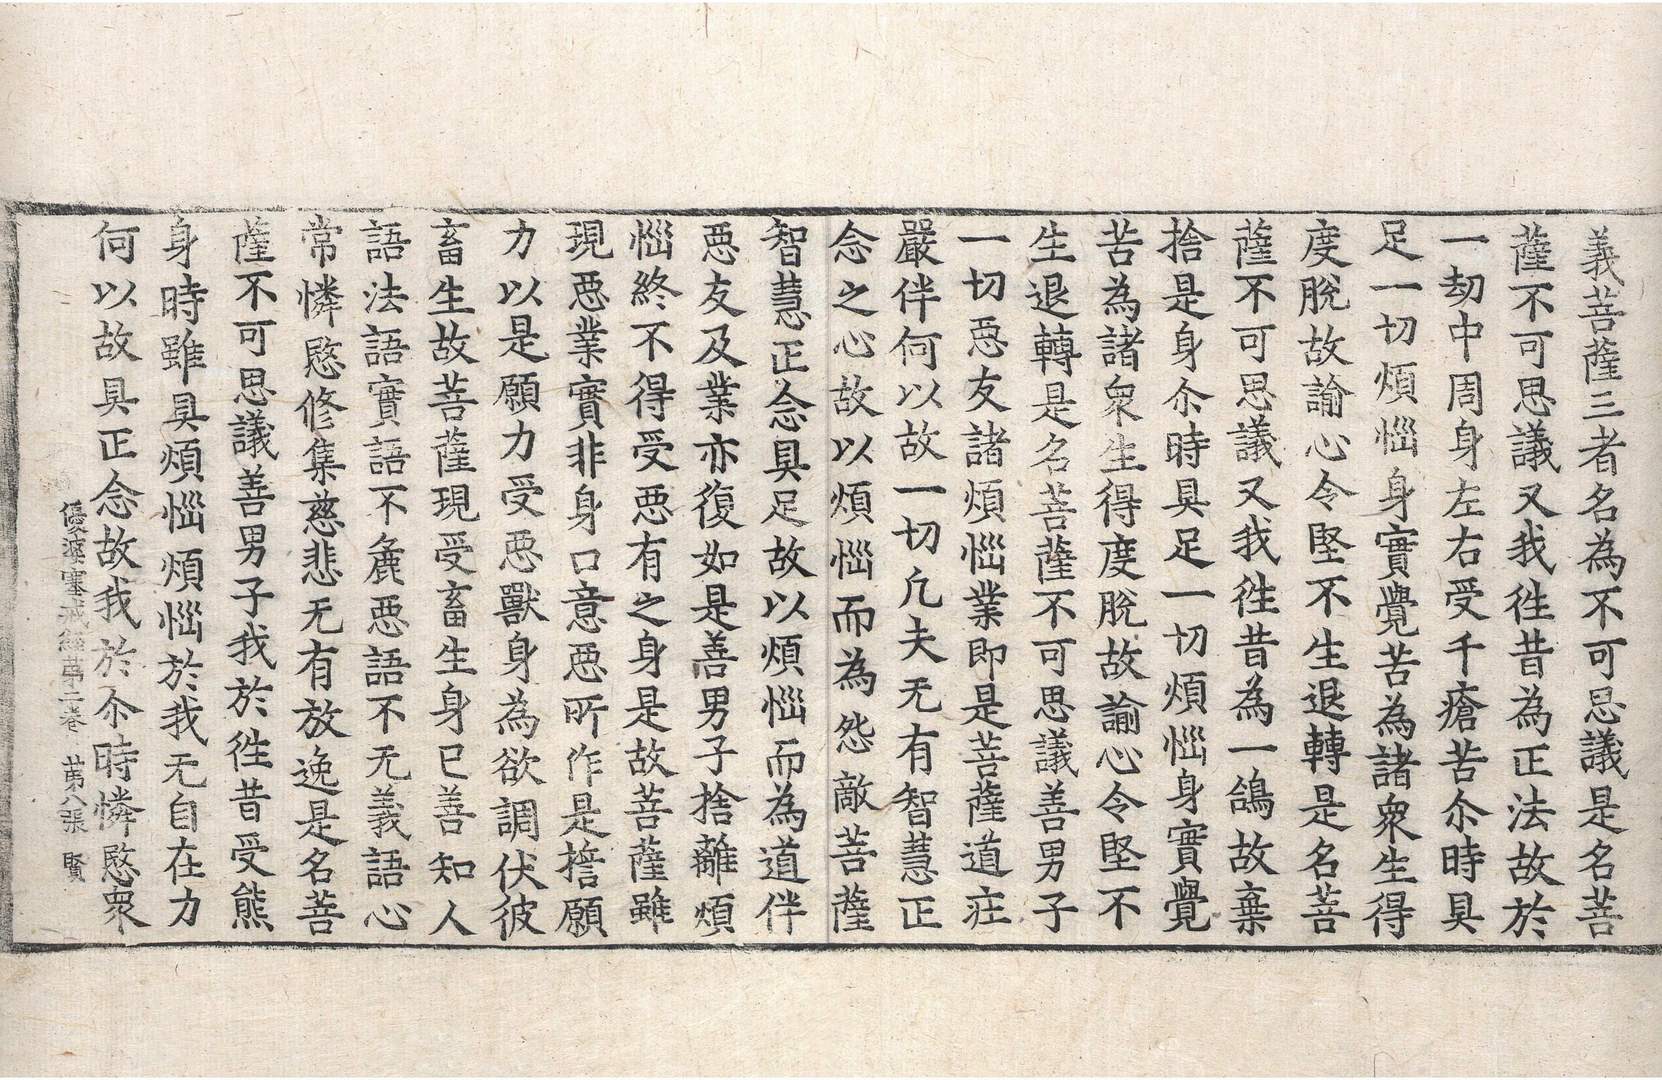 義菩薩三者名為不可思議是名菩
薩不可思議又我徃昔為正法故於
一劫中周身左右受千瘡苦尒時具
足一切煩惱身實覺苦為諸衆生得
度脫故諭心令堅不生退轉是名菩
薩不可思議又我徃昔為一鴿故棄
捨是身尒時具足一切煩惱身實覺
苦為諸衆生得度脫故諭心令堅不
生退轉是名菩薩不可思議善男子
一切惡友諸煩惱業即是菩薩道莊
嚴伴何以故一切凢夫无有智慧正
念之心故以煩惱而為怨敵菩薩
智慧正念具足故以煩惱而為道伴
惡友及業亦復如是善男子捨離煩
惱終不得受惡有之身是故菩薩雖
現惡業實非身口意惡所作是誓願
力以是願力受惡獸身為欲調伏彼
畜生故菩薩現受畜生身已善知人
語法語實語不麁惡語不无義語心
常憐愍修集慈悲无有放逸是名菩
薩不可思議善男子我於徃昔受熊
身時雖具煩惱煩惱於我无自在力
何以故具正念故我於尒時憐愍衆
優婆塞戒經苐二卷　苐八張　賢